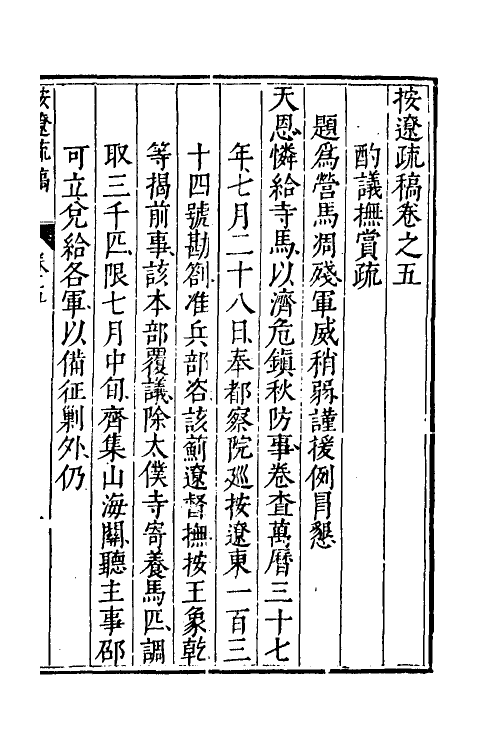 按遼疏稿卷之五
酌議撫賞疏
題爲營馬凋殘軍威稍弱謹援例冐懇
天恩憐給寺馬以濟危鎭秋防事卷查萬曆三十七
年七月二十八日奉都察院廵按遼東一百三
十四號勘劄准兵部咨該薊遼督撫按王象乾
等揭前事該本部覆議除太僕寺寄養馬匹調
取三千匹限七月中旬齊集山海關聽主事邵
可立兌給各軍以備征剿外仍
按遼疏稿
卷之五